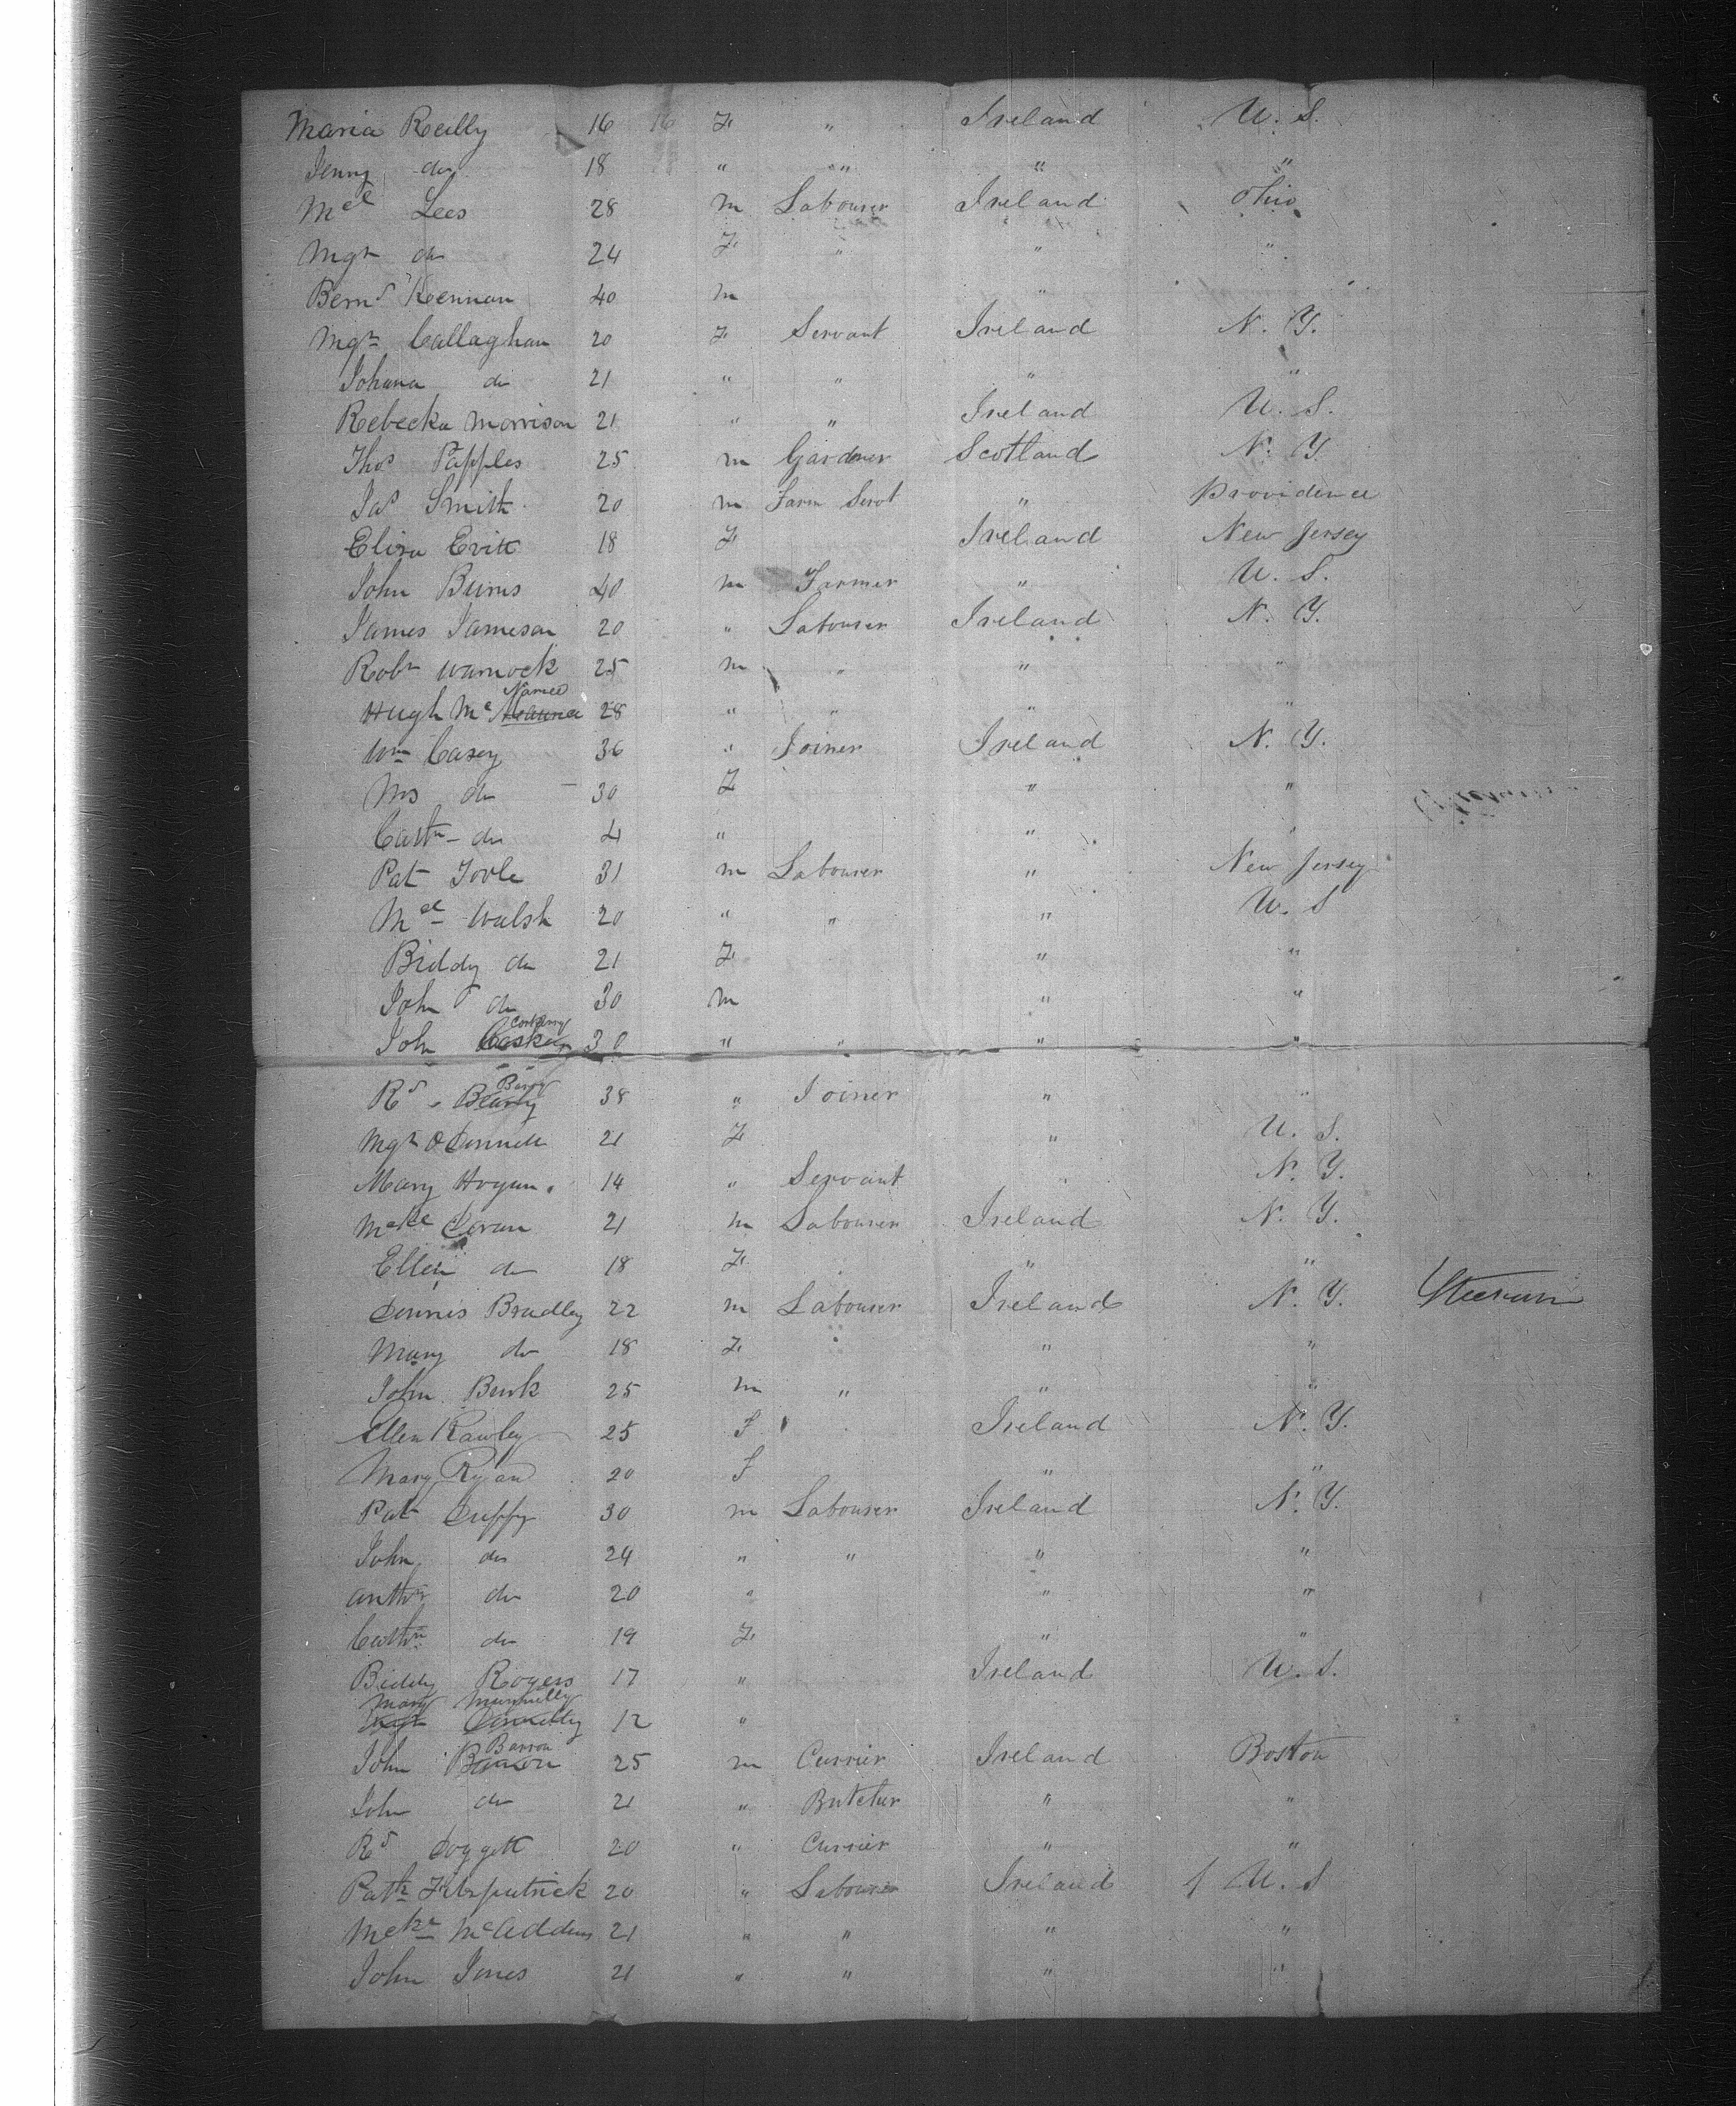 Maria Reilly 16 16 F " Ireland U. S.
Jenny do 18 18 " "" " "
Mcl Lees 28 m Labourer Ireland Ohio
Mgt do 24 F " " "
Bernd Keenan 40 m " "
Mgt Callaghan 20 F Servant Ireland N. Y.
Johana do 21 " " " "
Rebecka Morrison 21 " " Ireland U. S.
Thos Papples 25 m Gardner Scotland N. Y.
Jas Smith 20 m Farm Servt " Providence
Eliza Evitt 18 F Ireland New Jersey
John Burns 40 m Farmer " U. S.
James Jameson 20 " Labourer Ireland N. Y.
Robt Warnock 25 m " " "
Namee
Hugh Mc 28 " " " "
Wm Casey 36 " Joiner Ireland N. Y.
Mrs do 30 F " "
Cathn do 4 " " "
Pat Toole 31 m Labourer " New Jersey
Mcl Walsh 20 " " " U. S
Biddy do 21 F " "
John do 30 m " "
Corkerry
John 30 " " " "
Barry
Rd Bearry 38 " Joiner " "
Mgt O Donnell 21 F " U. S.
Mary Hogan 14 " Servant " N. Y.
Mckl Doran 21 m Labourer Ireland N. Y.
Ellen do 18 F " "
Dennis Bradley 22 m Labourer Ireland N. Y. Steerage
Mary do 18 F " "
John Burk 25 m " " "
Ellen Rawley 25 F Ireland N. Y.
Mary Ryan 20 F " "
Pat Duffy 30 m Labourer Ireland N. Y.
John do 24 " " " "
Anthy do 20 " " "
Cathn do 19 F " "
Biddy Rogers 17 " Ireland U. S.
Mary Munnelly
Mgt Donnelly 12 "
Barron
John 25 m Currier Ireland Boston
John do 21 " Butcher " "
Rd Doggett 20 " Currier " "
Patk Fitzpatrick 20 " Labourer Ireland U. S
Mckl McAddens 21 " " " "
John Jones 21 " " " "